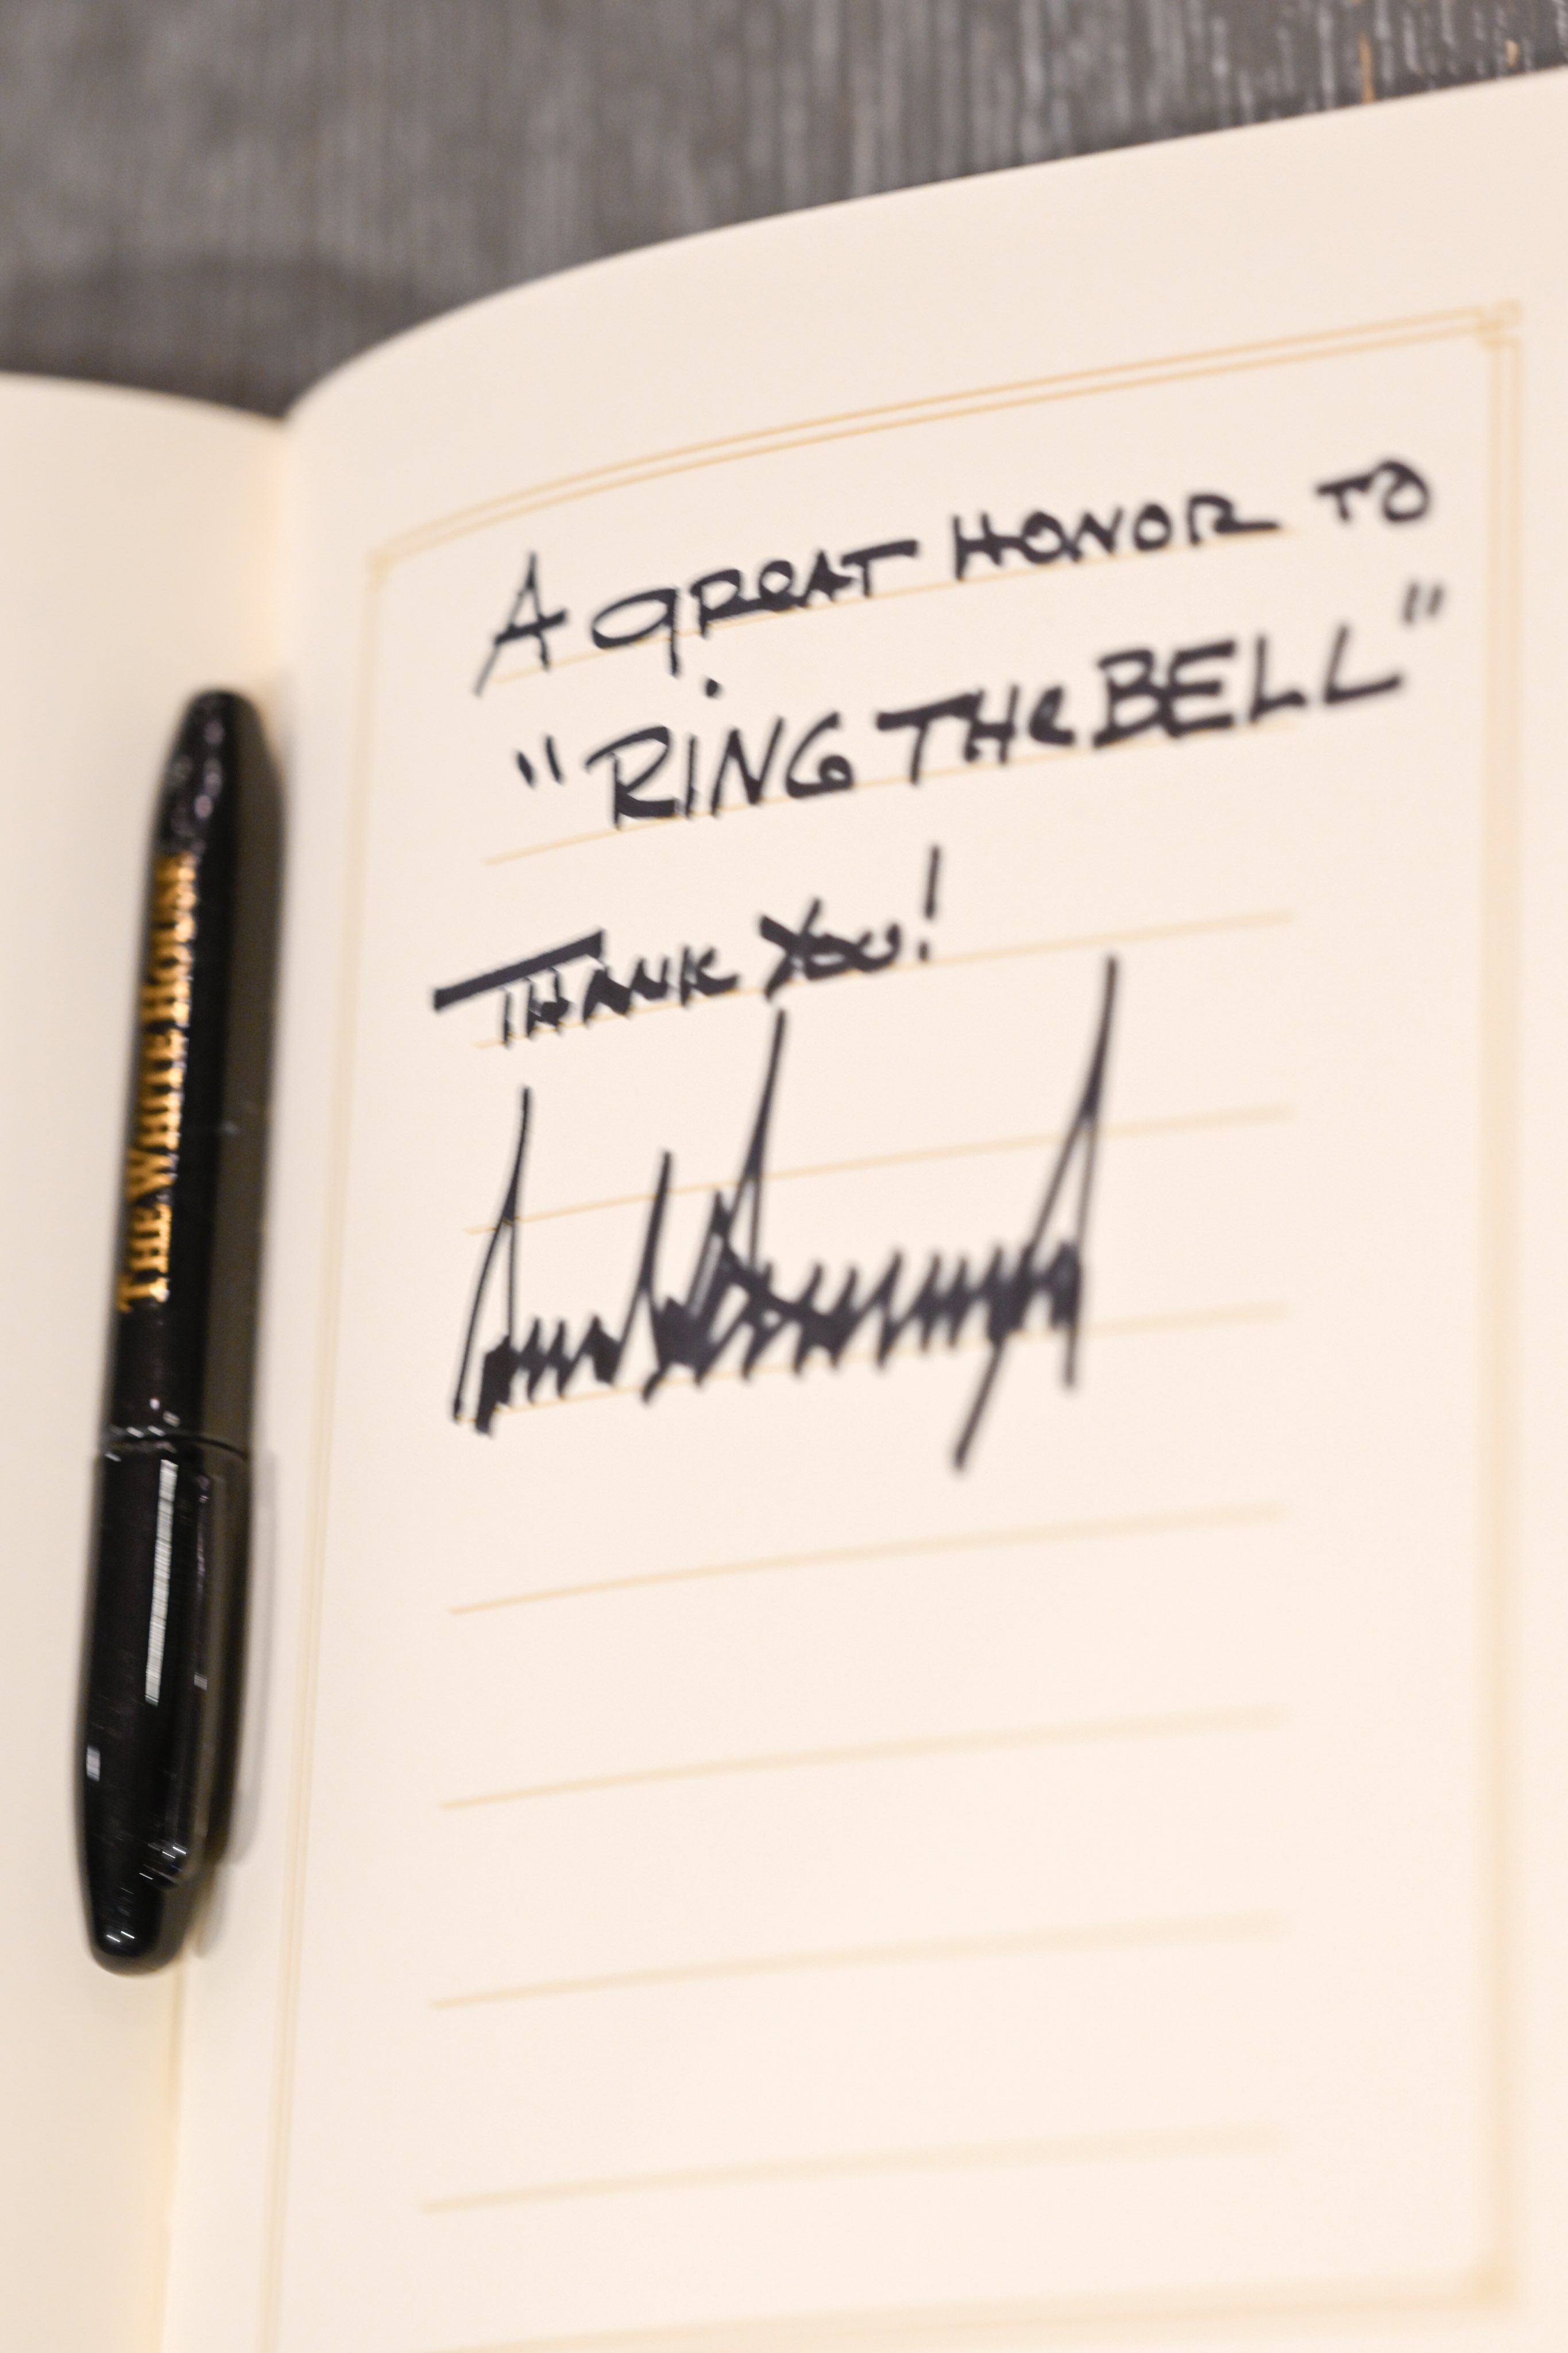 A gREAT HONOR TO
"RING THe BELL"
THANK YOU!
THE WHITE HOUSE